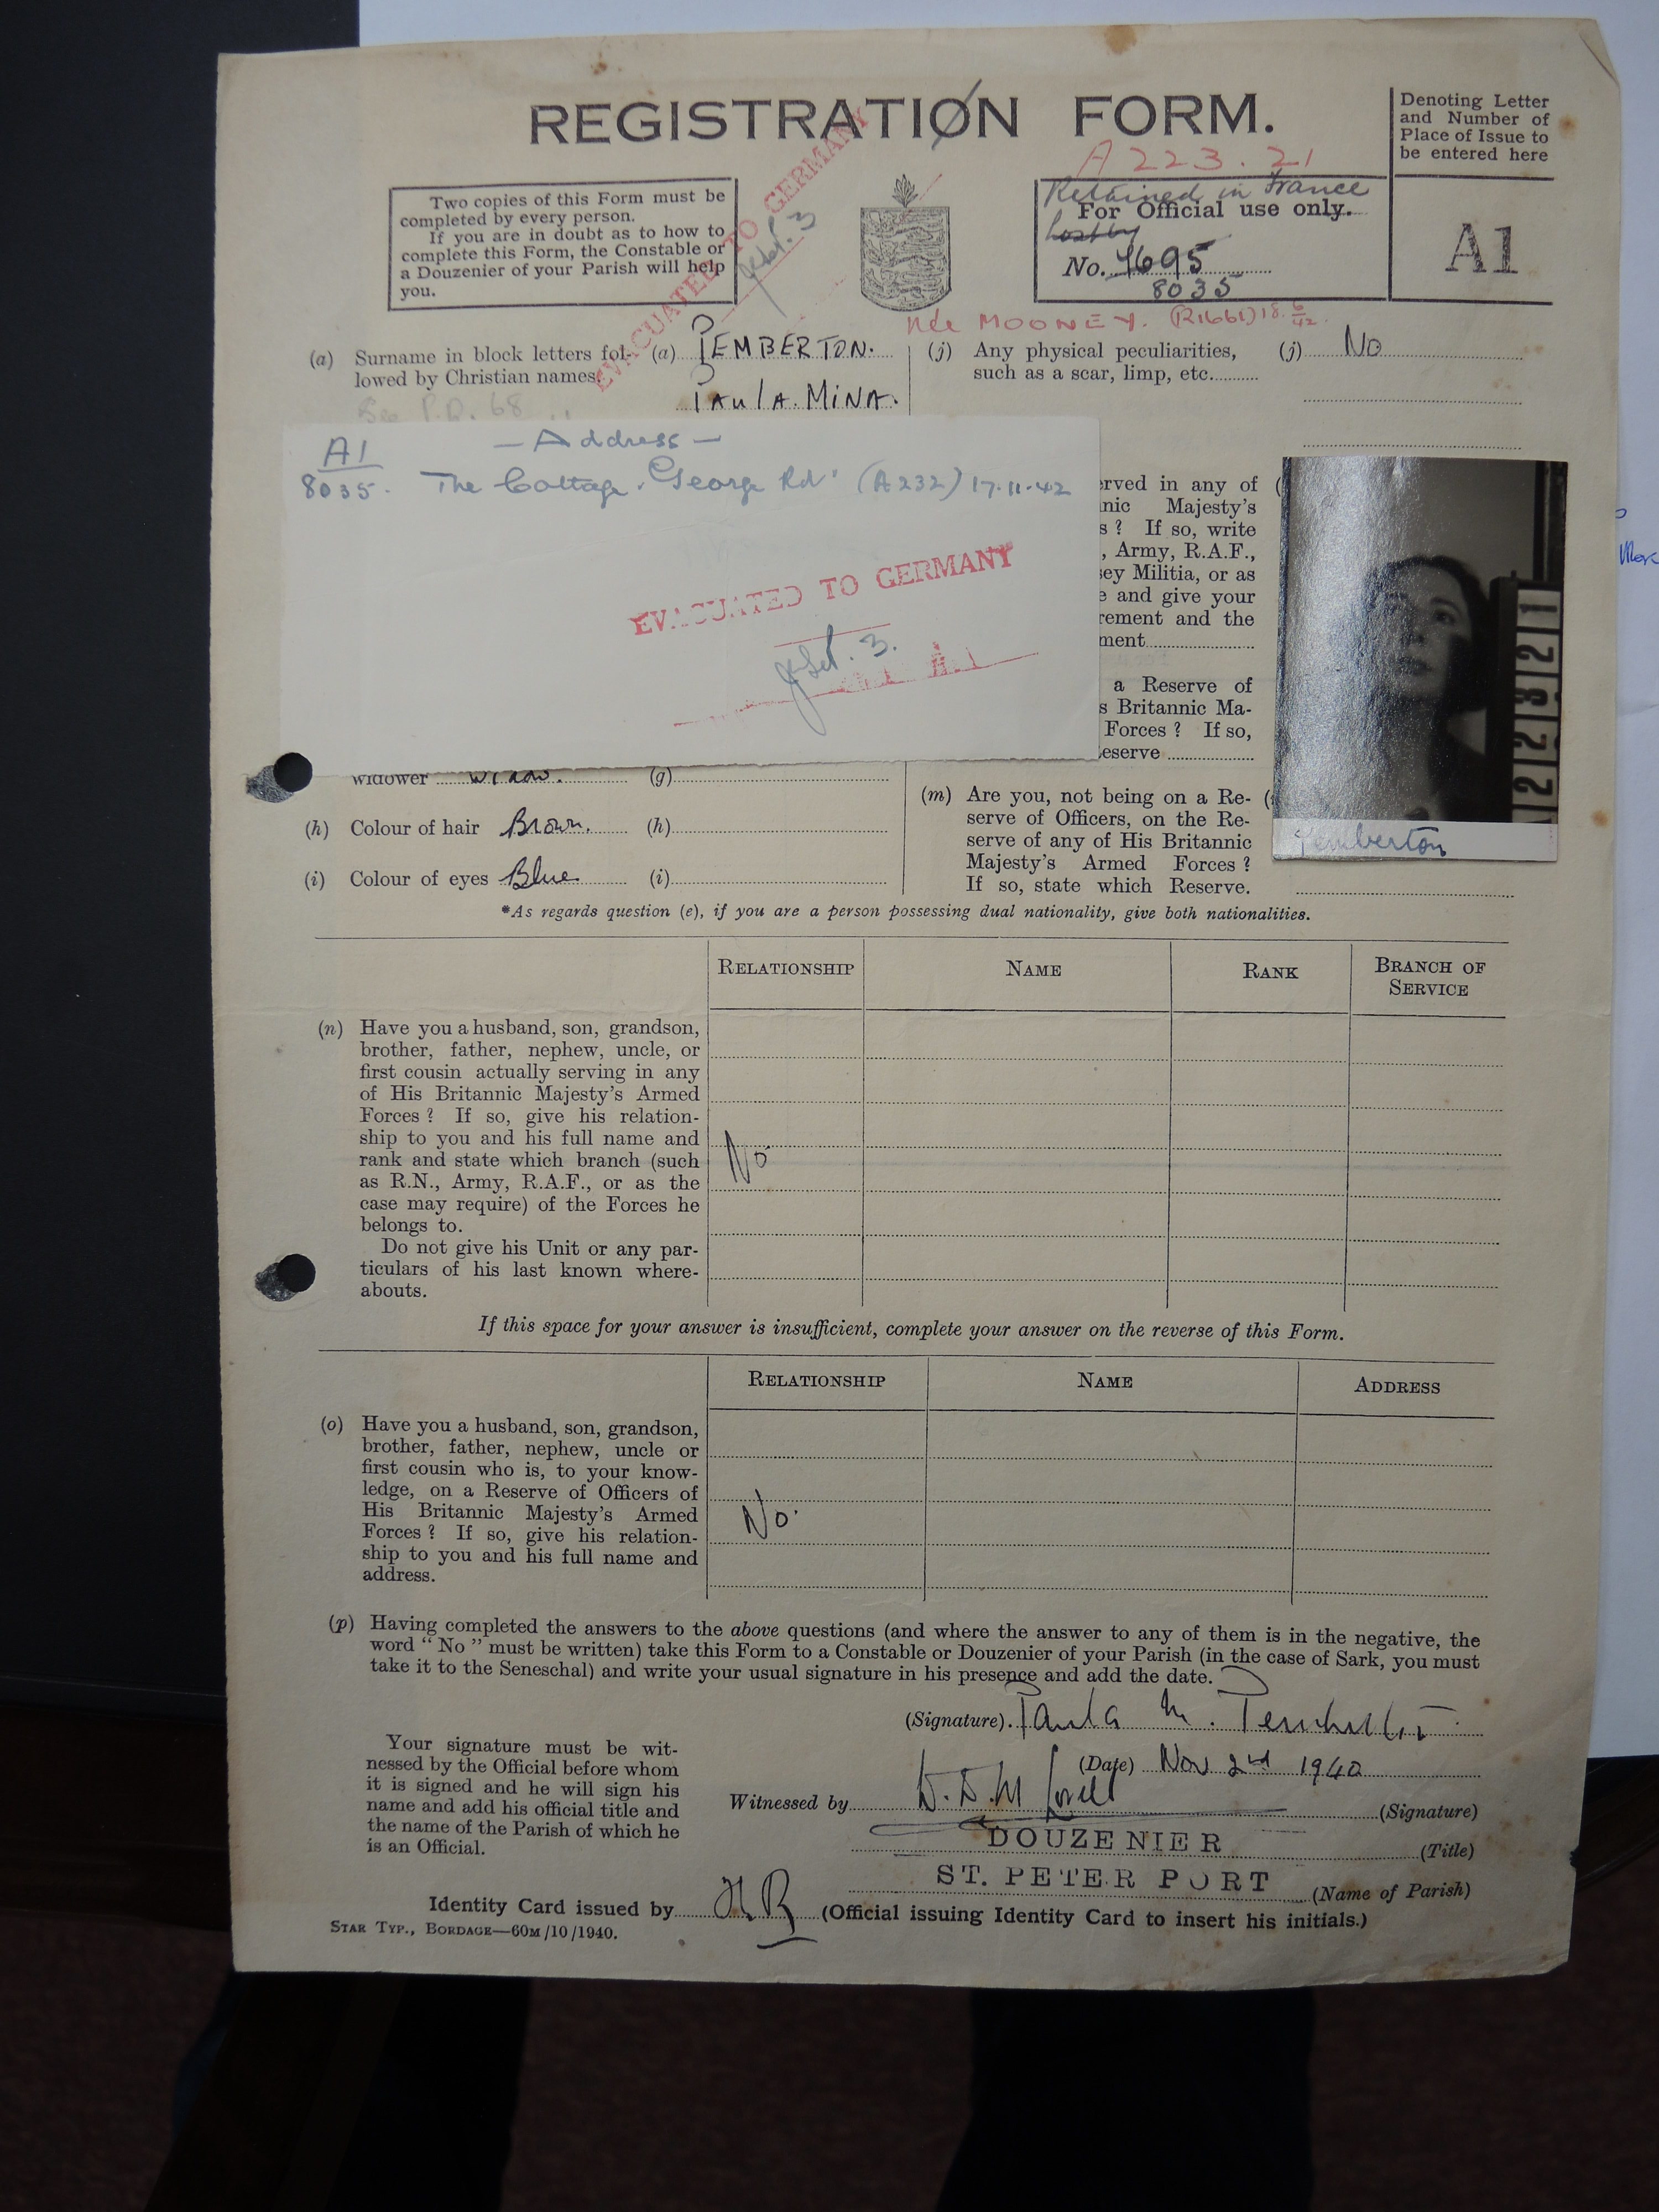 REGISTRATION FORM.
Denoting Letter
and Number of
Place of Issue to
be entered here
A1
A 223.21
Two copies of this Form must be
completed by every person.
If you are in doubt as to how to
complete this Form, the Constable or
a Douzenier of your Parish will help
you.
EVACUATED TO GERMANY
Retained in France
For Official use only.
No. 4695
8035
née MOONEY. (R1661) 18.6/42.
(a) Surname in block letters fol- (a) PEMBERTON.
lowed by Christian names.
PAULA. MINA.
See P.D. 68
(j) Any physical peculiarities, (j) No
such as a scar, limp, etc.
A1
8035.
— Address —
The Cottage. George Rd. (A232) 17.11.42
EVACUATED TO GERMANY
erved in any of
nic Majesty's
s? If so, write
, Army, R.A.F.,
sey Militia, or as
e and give your
rement and the
ment
a Reserve of
s Britannic Ma-
Forces? If so,
eserve
122321
Pemberton
widower widow. (g)
(h) Colour of hair Brown. (h)
(i) Colour of eyes Blue (i)
(m) Are you, not being on a Re-
serve of Officers, on the Re-
serve of any of His Britannic
Majesty's Armed Forces?
If so, state which Reserve.
*As regards question (e), if you are a person possessing dual nationality, give both nationalities.
RELATIONSHIP NAME RANK BRANCH OF SERVICE
(n) Have you a husband, son, grandson,
brother, father, nephew, uncle, or
first cousin actually serving in any
of His Britannic Majesty's Armed
Forces? If so, give his relation-
ship to you and his full name and
rank and state which branch (such
as R.N., Army, R.A.F., or as the
case may require) of the Forces he
belongs to.
Do not give his Unit or any par-
ticulars of his last known where-
abouts.
No
If this space for your answer is insufficient, complete your answer on the reverse of this Form.
RELATIONSHIP NAME ADDRESS
(o) Have you a husband, son, grandson,
brother, father, nephew, uncle or
first cousin who is, to your know-
ledge, on a Reserve of Officers of
His Britannic Majesty's Armed
Forces? If so, give his relation-
ship to you and his full name and
address.
No.
(p) Having completed the answers to the above questions (and where the answer to any of them is in the negative, the
word "No" must be written) take this Form to a Constable or Douzenier of your Parish (in the case of Sark, you must
take it to the Seneschal) and write your usual signature in his presence and add the date.
(Signature). Paula M. Pemberton
(Date) Nov 2nd 1940
Your signature must be wit-
nessed by the Official before whom
it is signed and he will sign his
name and add his official title and
the name of the Parish of which he
is an Official.
Witnessed by (Signature)
DOUZENIER (Title)
ST. PETER PORT (Name of Parish)
Identity Card issued by (Official issuing Identity Card to insert his initials.)
STAR TYP., BORDAGE—60M/10/1940.